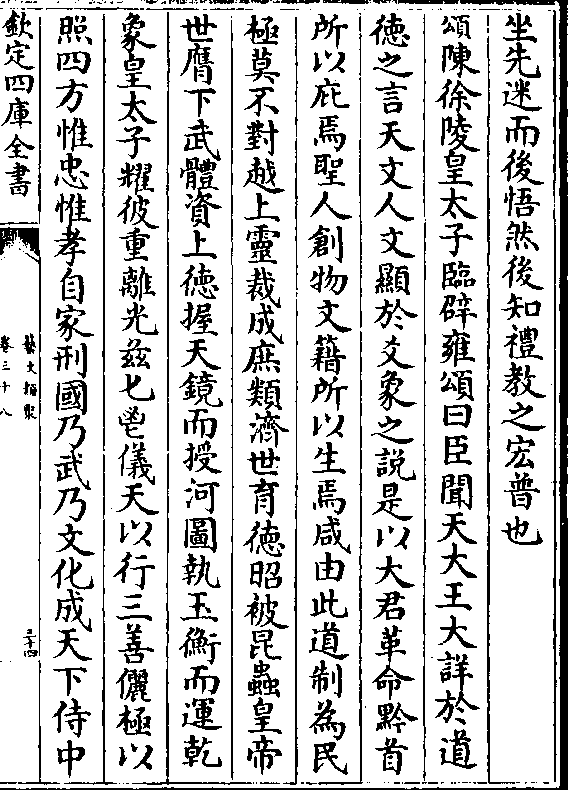 坐先迷而後悟然後知禮教之宏普也
頌陳徐陵皇太子臨辟雍頌曰臣聞天大王大詳於道
徳之言天文人文顯於爻象之說是以大君革命黔首
所以庇焉聖人創物文籍所以生焉咸由此道制為民
極莫不對越上靈裁成庶類濟世育徳昭被昆蟲皇帝
世膺下武體資上徳握天鏡而授河圖執玉衡而運乾
象皇太子耀彼重離光兹匕鬯儀天以行三善儷極以
照四方惟忠惟孝自家刑國乃武乃文化成天下侍中
欽定四庫全書
藝文類聚
卷三十八
三十四